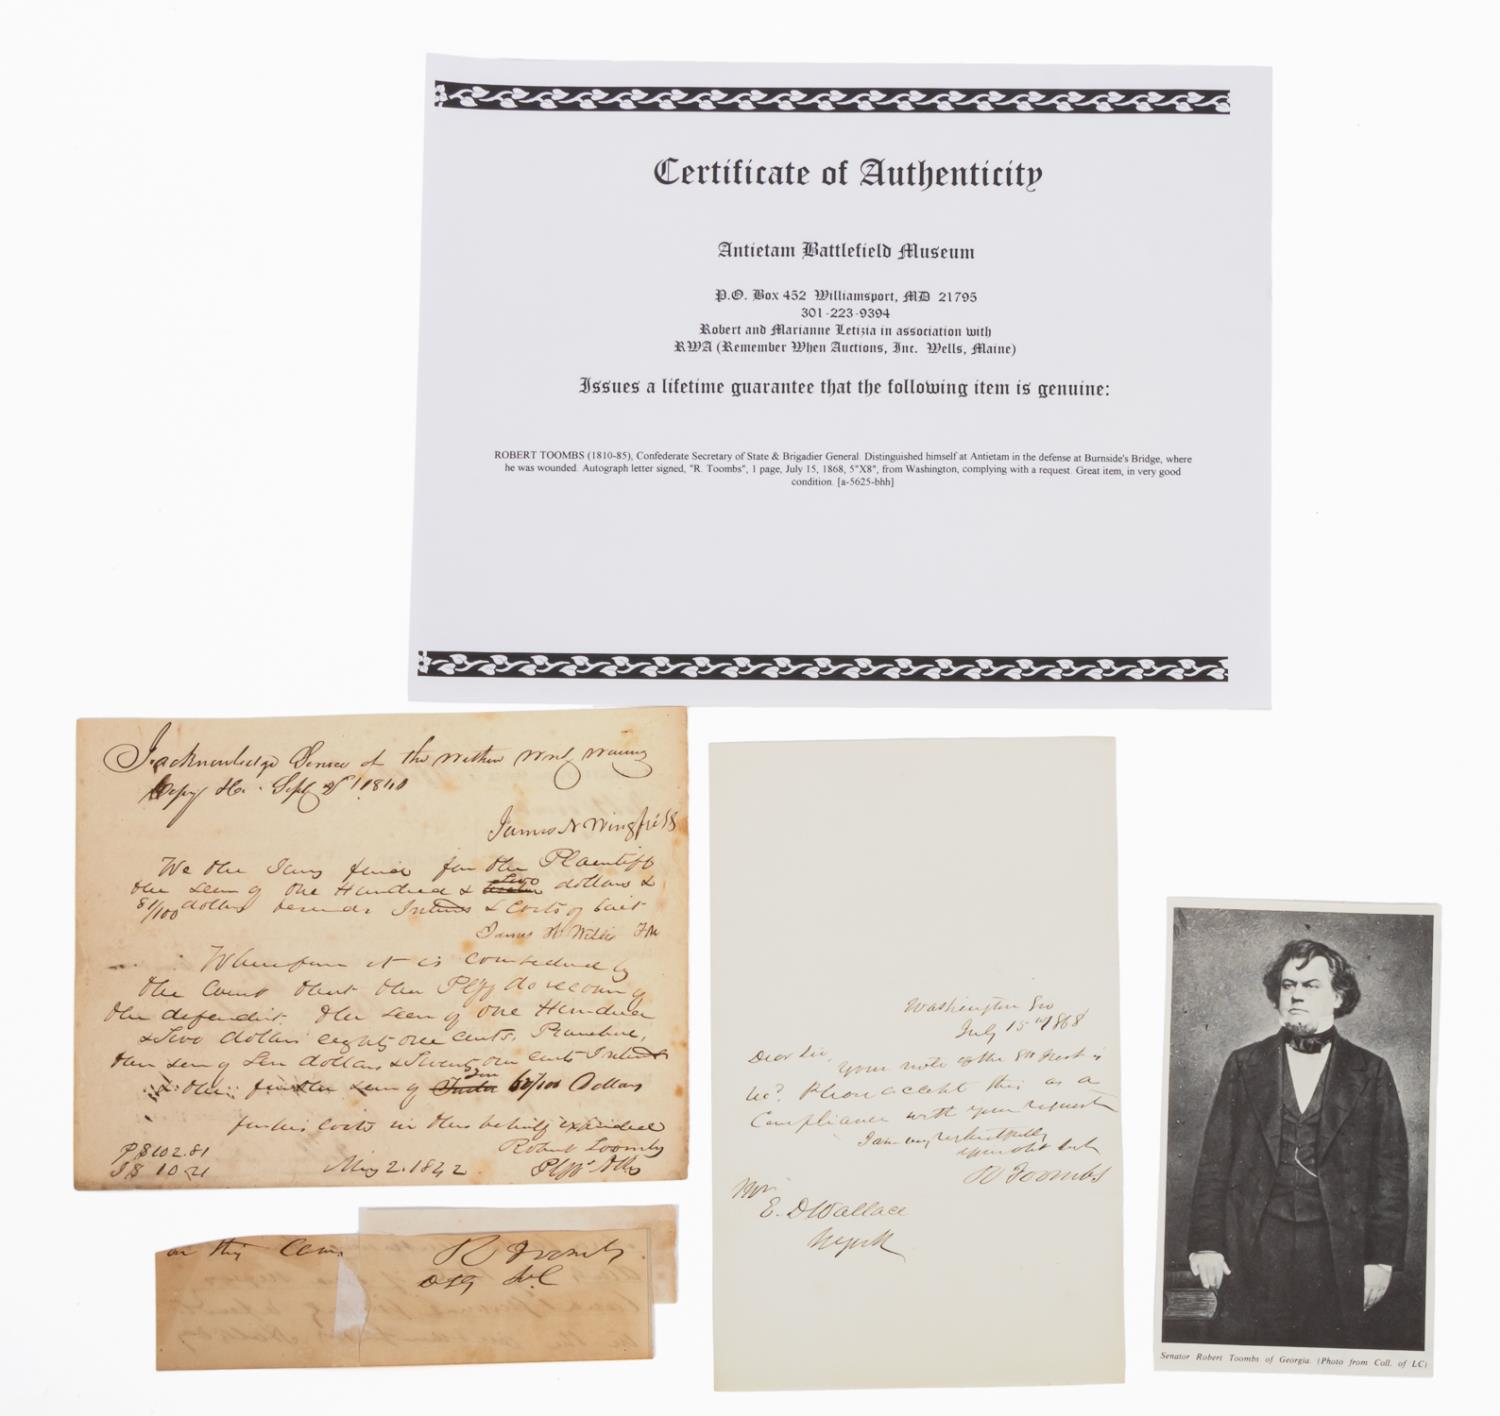 Certificate of Authenticity
Antietam Battlefield Museum
P.O. Box 452 Williamsport, MD 21795
301-223-9394
Robert and Marianne Letizia in association with
RWA (Remember When Auctions, Inc. Wells, Maine)
Issues a lifetime guarantee that the following item is genuine:
ROBERT TOOMBS (1810-85), Confederate Secretary of State & Brigadier General. Distinguished himself at Antietam in the defense at Burnside's Bridge, where
he was wounded. Autograph letter signed, "R. Toombs", 1 page, July 15, 1868, 5"X8", from Washington, complying with a request. Great item, in very good
condition. [a-5625-bhh]
I acknowledge Service of the within writ waving
Copy &c. Sept
James N Wingfield
We the Jury find for the Plaintiff
the sum of one Hundred & two dollars &
81/100 dollars besides Interest & Costs of suit
James
Wherefore it is considered by
the Court that the Plff do recover of
the defendant the sum of one Hundred
& Two dollars eighty one cents, Principal,
the sum of Ten dollars & Seventy one cents Interest
& the further sum of Dollars
for his costs in this behalf expended
P $102.81
Robert Toombs
May 2. 1842
Plffs Atty
on this Cam
R Toombs
Washington Geo
July 15th 1868
Dear Sir,
Your note of the 8th Inst is
rec? Please accept this as a
Compliance with your request
I am very respectfully
your obt svt
R Toombs
Mr.
E. D Wallace
N York
Senator Robert Toombs of Georgia. (Photo from Coll. of LC)